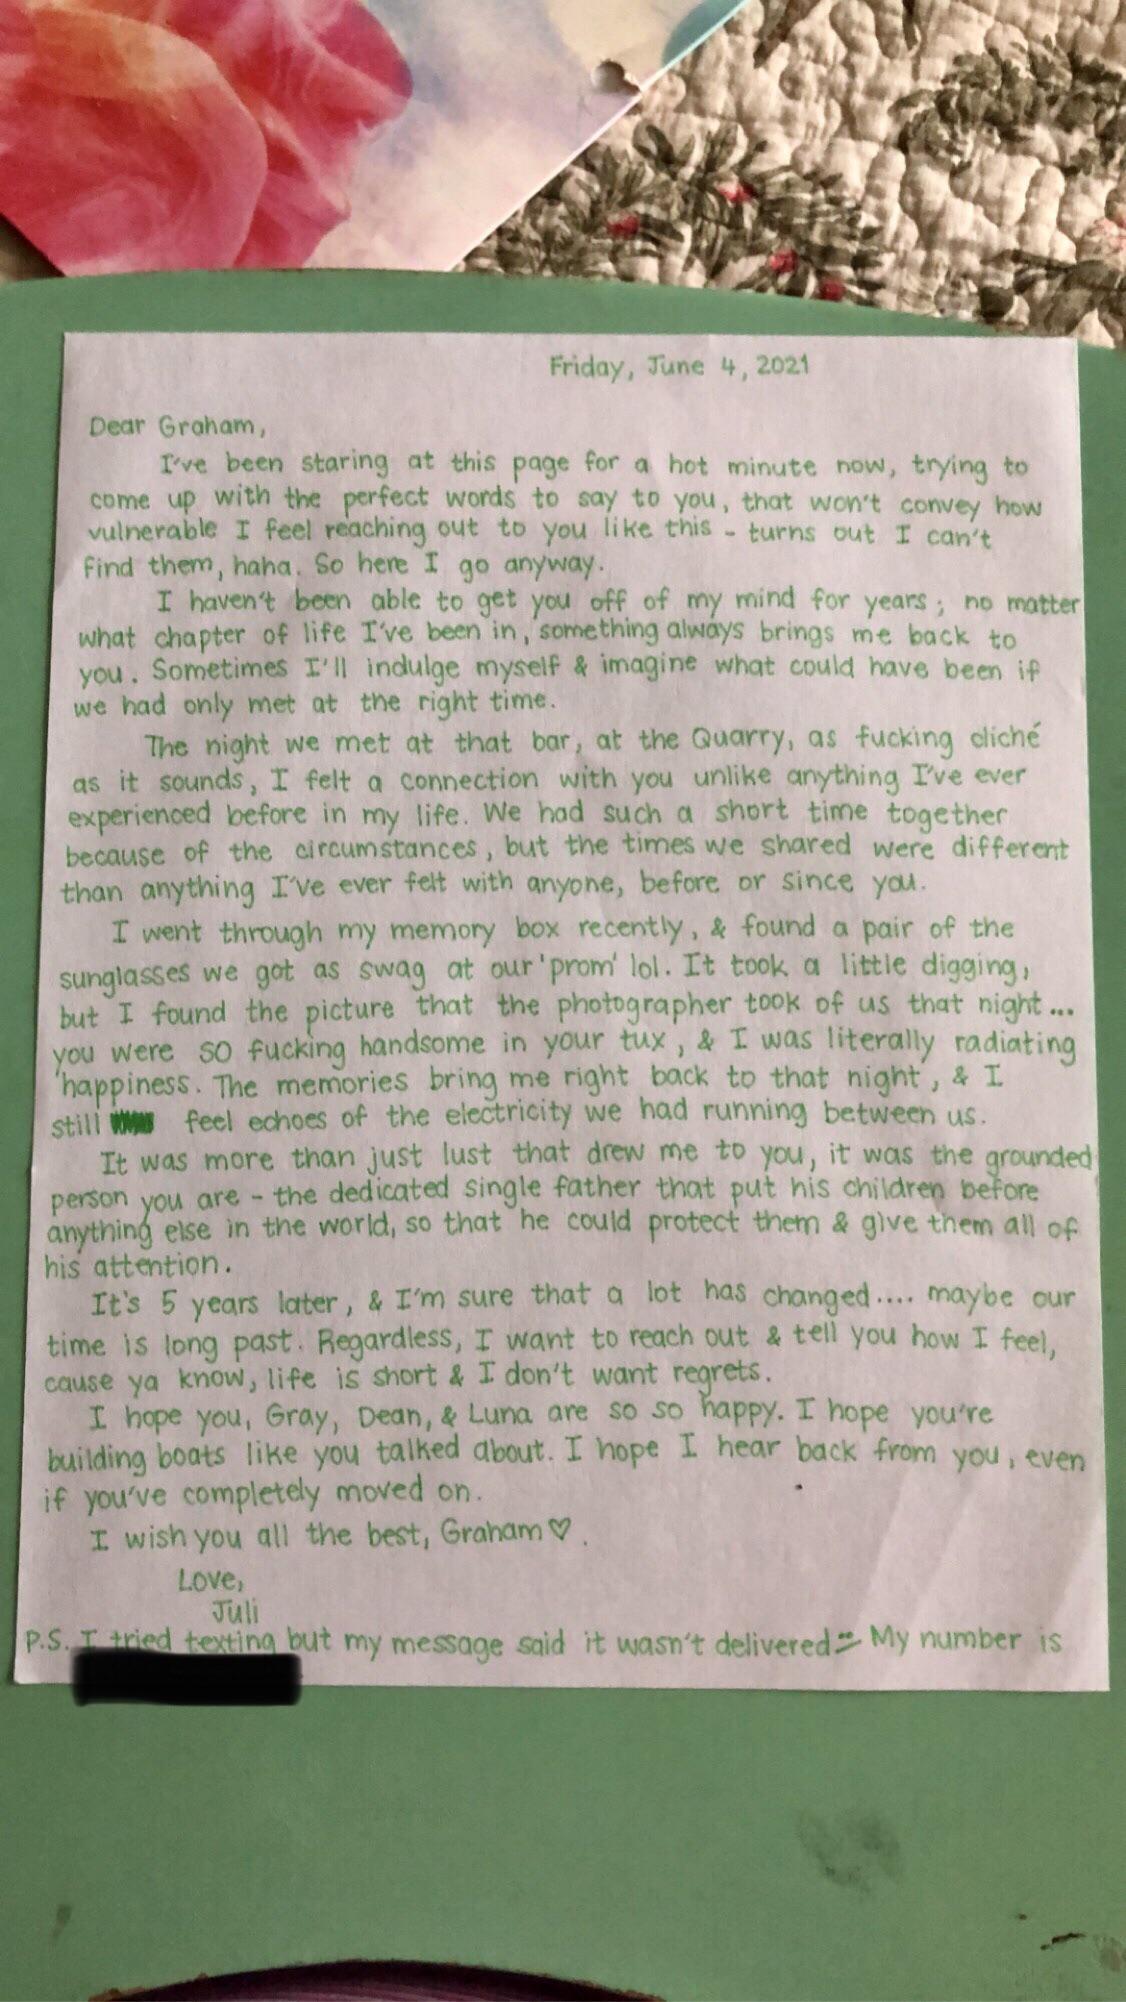 Friday, June 4, 2021
Dear Graham,
I've been staring at this page for a hot minute now, trying to
come up with the perfect words to say to you, that won't convey how
vulnerable I feel reaching out to you like this - turns out I can't
find them, haha. So here I go anyway.
I haven't been able to get you off of my mind for years; no matter
what chapter of life I've been in, something always brings me back to
you. Sometimes I'll indulge myself & imagine what could have been if
we had only met at the right time.
The night we met at that bar, at the Quarry, as fucking cliché
as it sounds, I felt a connection with you unlike anything I've ever
experienced before in my life. We had such a short time together
because of the circumstances, but the times we shared were different
than anything I've ever felt with anyone, before or since you.
I went through my memory box recently, & found a pair of the
sunglasses we got as swag at our 'prom' lol. It took a little digging,
but I found the picture that the photographer took of us that night...
you were SO fucking handsome in your tux, & I was literally radiating
happiness. The memories bring me right back to that night, & I
still feel echoes of the electricity we had running between us.
It was more than just lust that drew me to you, it was the grounded
person you are - the dedicated single father that put his children before
anything else in the world, so that he could protect them & give them all of
his attention.
It's 5 years later, & I'm sure that a lot has changed.... maybe our
time is long past. Regardless, I want to reach out & tell you how I feel,
cause ya know, life is short & I don't want regrets.
I hope you, Gray, Dean, & Luna are so so happy. I hope you're
building boats like you talked about. I hope I hear back from you, even
if you've completely moved on.
I wish you all the best, Graham♡.
Love,
Juli
P.S. I tried texting but my message said it wasn't delivered My number is